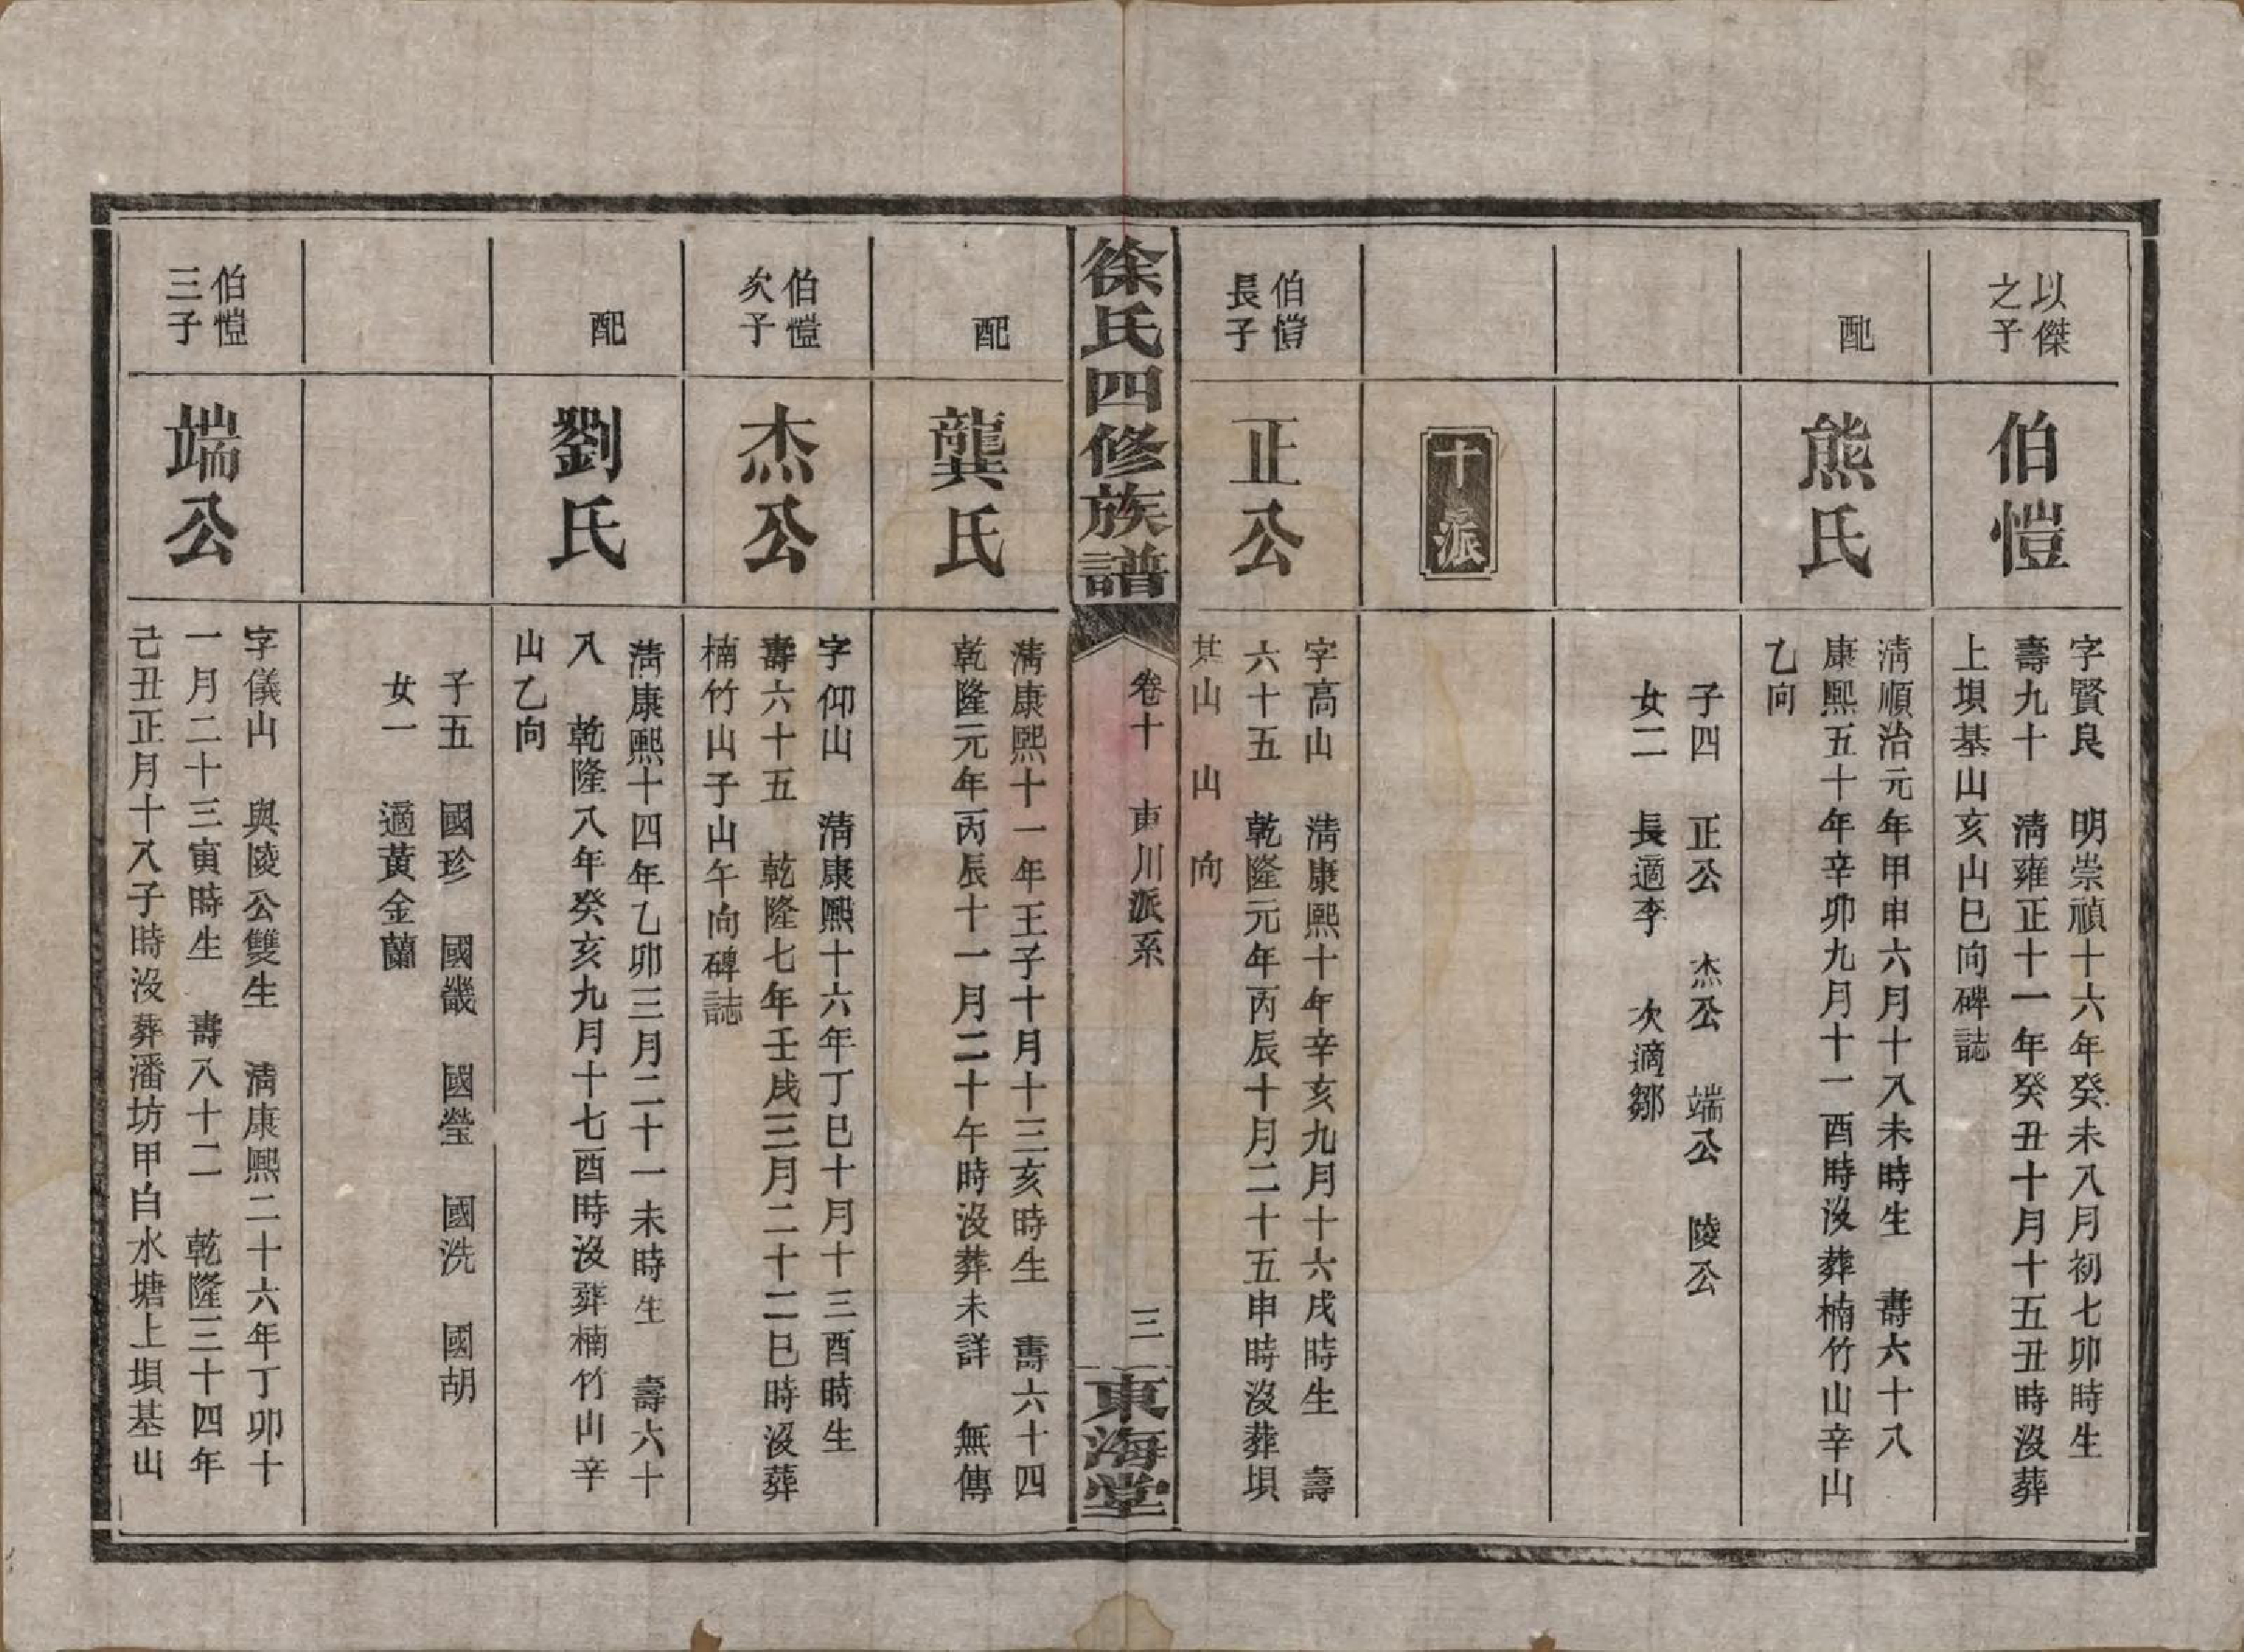 以傑
之子
伯愷
字賢良 明崇禎十六年癸未八月初七卯時生
壽九十 淸雍正十一年癸丑十月十五丑時沒葬
上垻基山亥山巳向碑誌
配
熊氏
淸順治元年甲申六月十八未時生 壽六十八
康熙五十年辛卯九月十一酉時沒葬楠竹山辛山
乙向
子四 正公 杰公 端公 陵公
女二 長適李 次適鄒
十派
伯愷
長子
正公
字高山 淸康熙十年辛亥九月十六戌時生 壽
六十五 乾隆元年丙辰十月二十五申時沒葬垻
基山 山 向
徐氏四修族譜
卷十 東川派系
三
東海堂
配
龔氏
淸康熙十一年壬子十月十三亥時生 壽六十四
乾隆元年丙辰十一月二十午時沒葬未詳 無傳
伯愷
次子
杰公
字仰山 淸康熙十六年丁巳十月十三酉時生
壽六十五 乾隆七年壬戌三月二十二巳時沒葬
楠竹山子山午向碑誌
配
劉氏
淸康熙十四年乙卯三月二十一未時生 壽六十
八 乾隆八年癸亥九月十七酉時沒葬楠竹山辛
山乙向
子五 國珍 國畿 國瑩 國洗 國胡
女一 適黃金蘭
伯愷
三子
端公
字儀山 與陵公雙生 淸康熙二十六年丁卯十
一月二十三寅時生 壽八十二 乾隆三十四年
己丑正月十八子時沒葬潘坊甲白水塘上垻基山